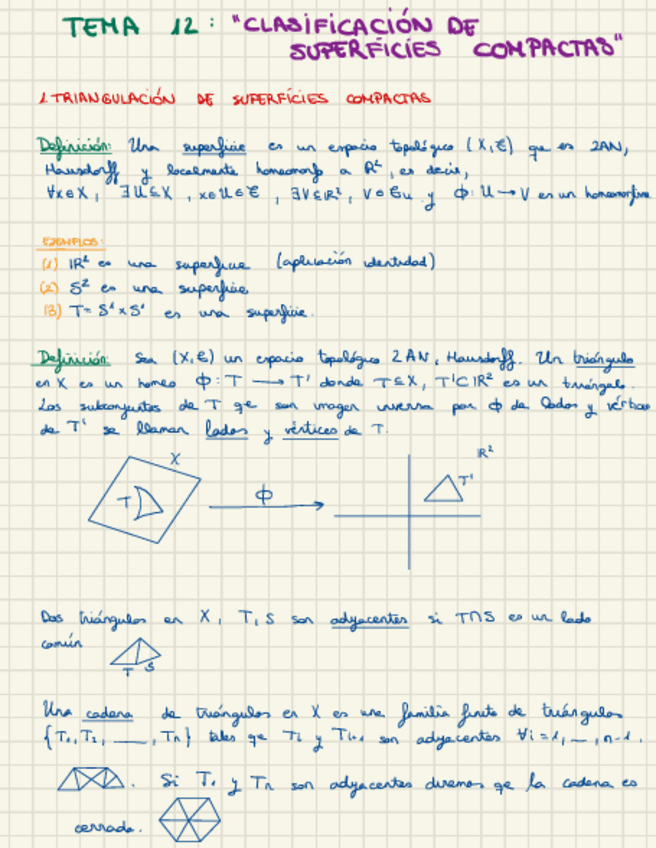 TEMA 12: "CLASIFICACIÓN DE
SUPERFICIES COMPACTAS"
1. TRIANGULACIÓN DE SUPERFÍCIES COMPACTAS
Definición: Una superficie es un espacio topológico (X, τ) que es 2AN,
Hausdorff y localmente homeomorfo a ℝ², es decir,
∀x∈X, ∃U⊆X, x∈U∈τ, ∃V⊆ℝ², V∈τu y ϕ: U → V es un homeomorfismo
EJEMPLOS:
(1) ℝ² es una superficie (aplicación identidad)
(2) S² es una superficie
(3) T = S¹ x S¹ es una superficie.
Definición: Sea (X, τ) un espacio topológico 2AN, Hausdorff. Un triángulo
en X es un homeo ϕ: T → T' donde T⊆X, T'⊂ℝ² es un triángulo.
Los subconjuntos de T qe son imagen inversa por ϕ de lados y vértices
de T' se llaman lados y vértices de T.
X
ℝ²
T
ϕ
T'
Dos triángulos en X, T, S son adyacentes si T∩S es un lado
común
T S
Una cadena de triángulos en X es una familia finita de triángulos
{T₁, T₂, ___, Tn} tales qe Ti y Ti+1 son adyacentes ∀i=1, __, n-1.
. Si T₁ y Tn son adyacentes diremos qe la cadena es
cerrada.